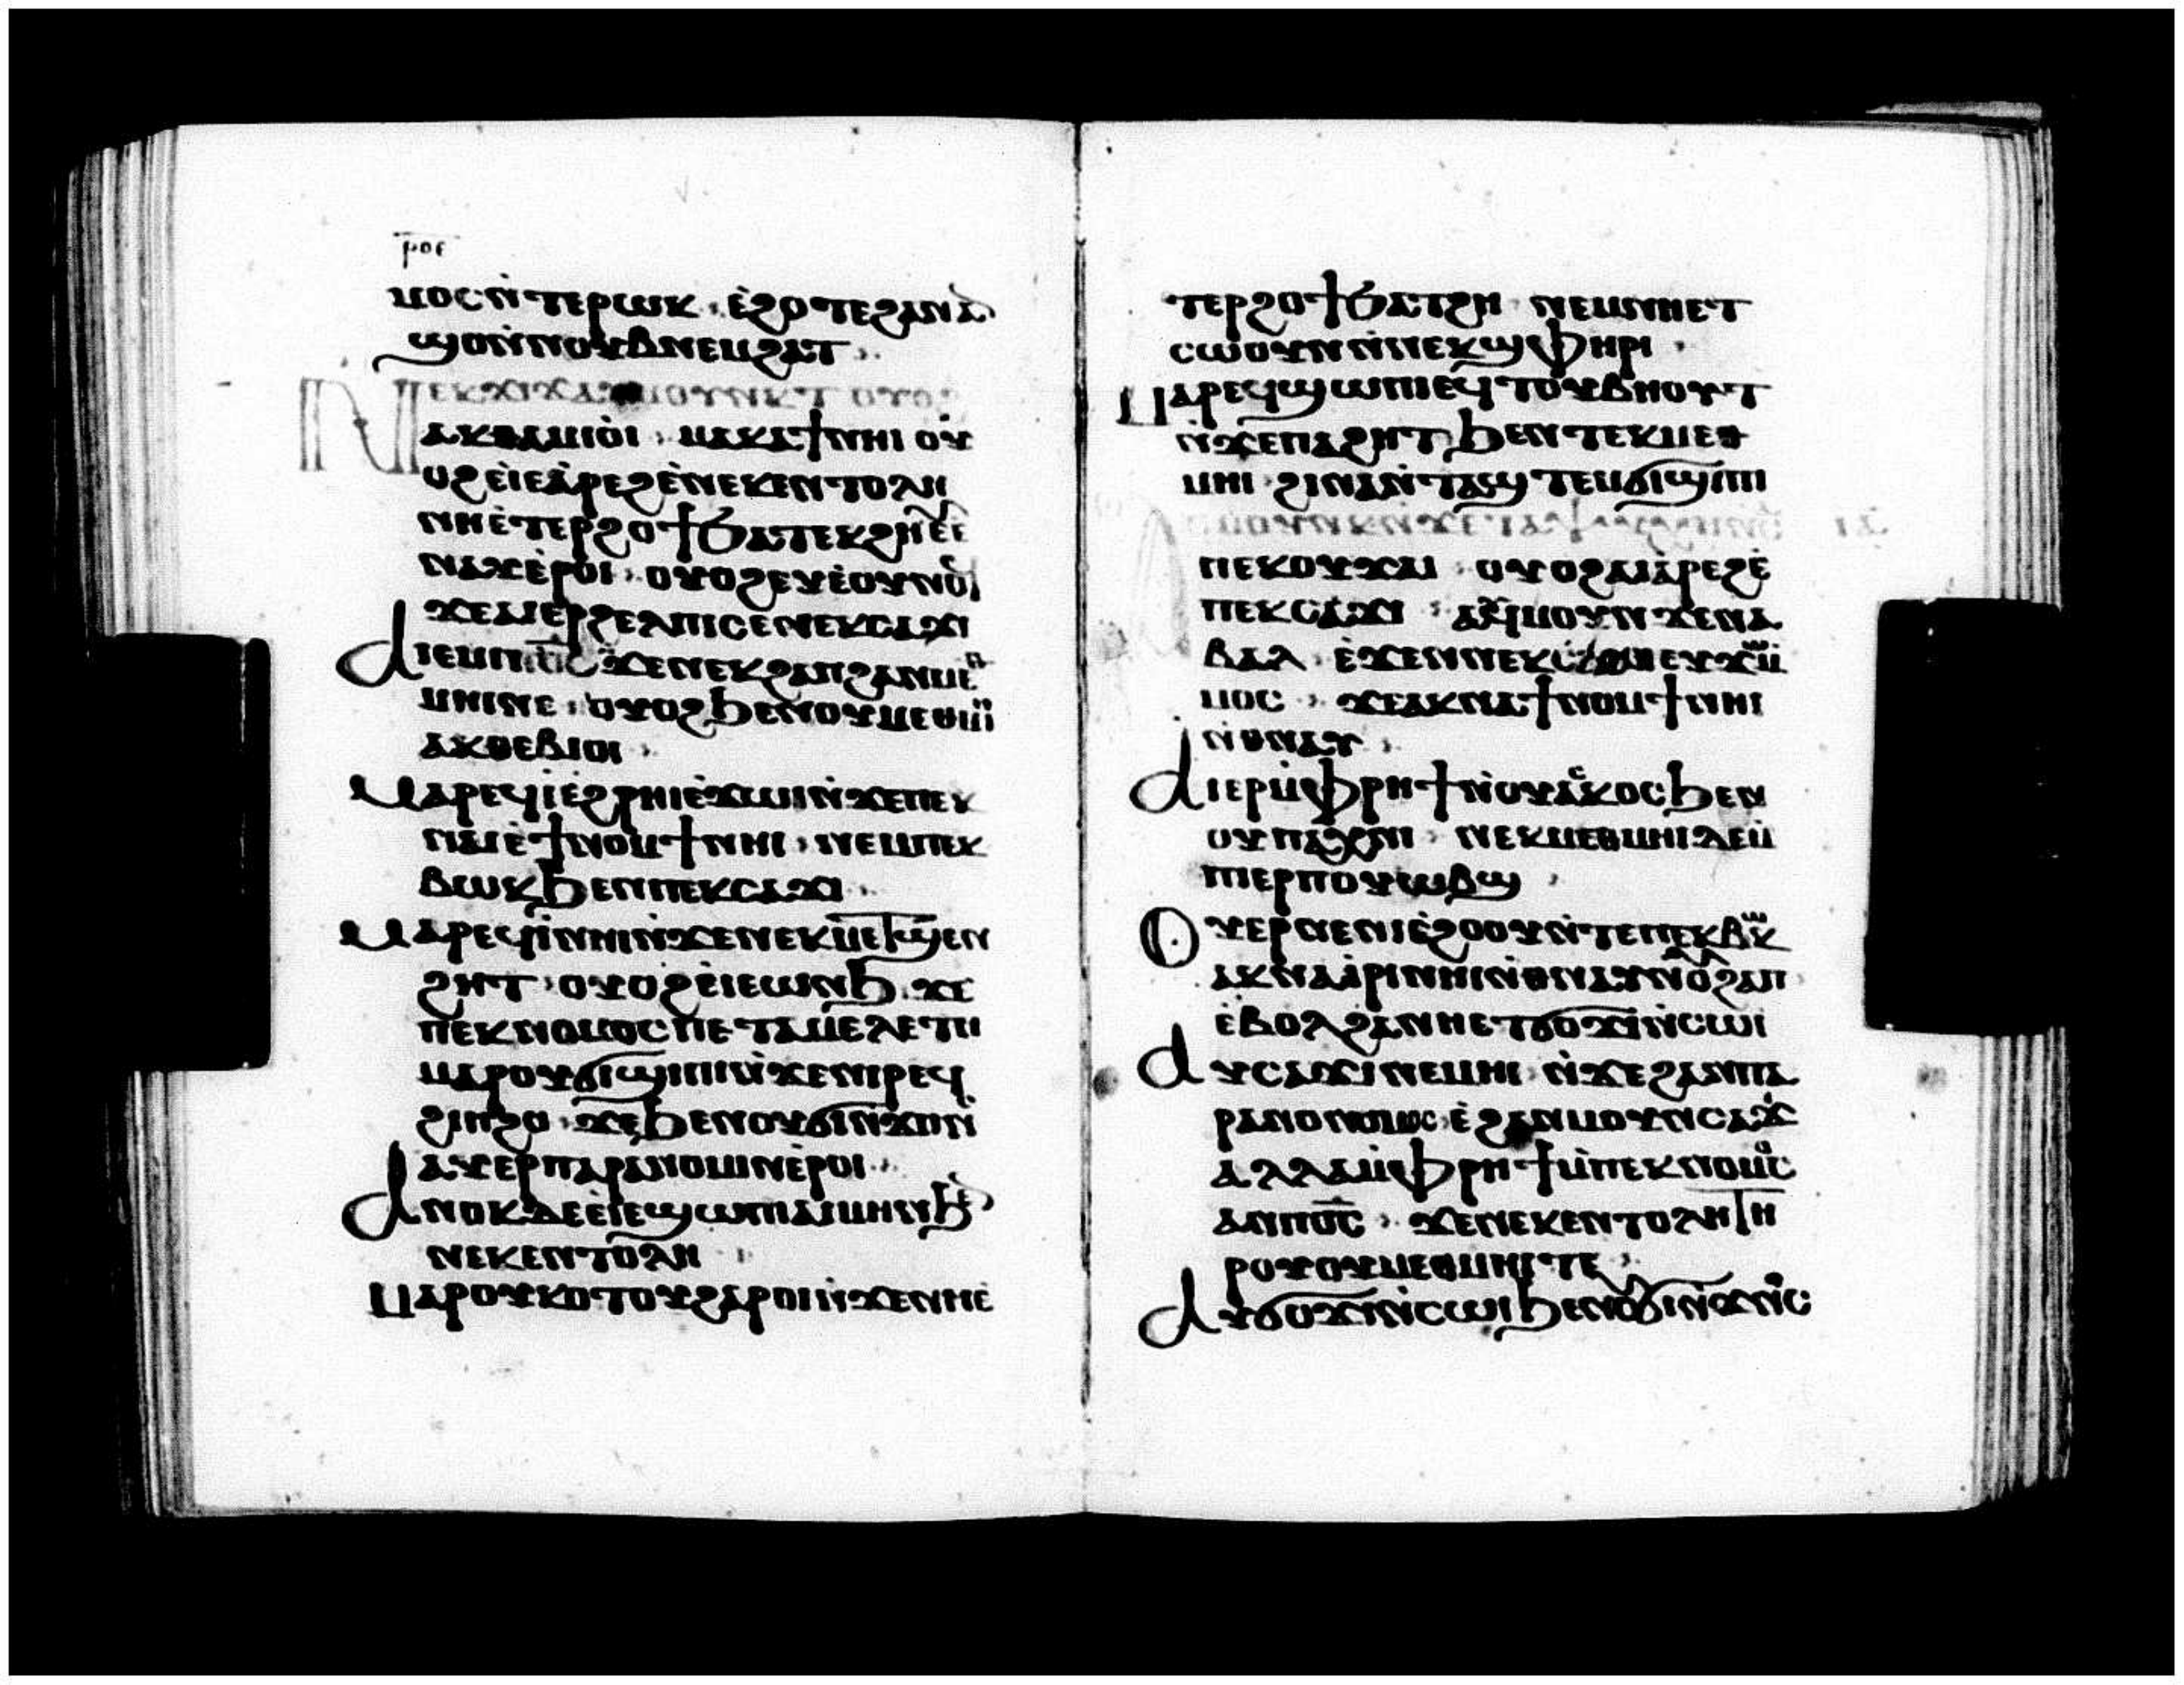 ⲣⲟⲉ
ⲙⲟⲥⲛ̀ⲧⲉⲣⲱⲕ · ⲉ̀ϩⲟⲧⲉϩⲁⲛⲁ̀
ϣⲟⲛ̀ⲛⲟⲩⲃⲛⲉⲙϩⲁⲧ ·
ⲁⲕⲑⲁⲙⲓⲟ̀ⲓ · ⲙⲁⲕⲁϯⲛⲏⲓ ⲟⲩ
ⲟϩⲉ̀ⲓⲉⲁ̀ⲣⲉϩⲉ̀ⲛⲉⲕⲉⲛⲧⲟⲗⲏ
ⲛⲏⲉ̀ⲧⲉⲣϩⲟϯϧⲁⲧⲉⲕϩⲏⲉ̀ⲉ
ⲛⲁⲩⲉ̀ⲣⲟⲓ · ⲟⲩⲟϩⲉⲩⲉ̀ⲟⲩⲛⲟϥ
ϫⲉⲁⲓⲉⲣϩⲉⲗⲡⲓⲥⲉⲛⲉⲕⲥⲁϫⲓ
ⲁⲓⲉⲙⲓⲡ̅ⲟ̅ⲥ̅ ϫⲉⲛⲉⲕϩⲁⲡϩⲁⲛⲙⲉⲑ
ⲙⲏⲓⲛⲉ · ⲟⲩⲟϩϧⲉⲛⲟⲩⲙⲉⲑⲙⲏⲓ
ⲁⲕⲑⲉⲃⲓⲟⲓ ·
ⲙⲁⲣⲉϥⲓ̀ⲉ̀ϩⲣⲏⲓⲉ̀ϫⲱⲓⲛ̀ϫⲉⲡⲉⲕ
ⲛⲁⲓⲉ̀ϯⲛⲟⲙϯⲛⲏⲓ · ⲛⲉⲙⲡⲉⲕ
ⲃⲱⲕϧⲉⲛⲡⲉⲕⲥⲁϫⲓ ·
ⲙⲁⲣⲉϥⲓ̀ⲛⲏⲓⲛ̀ϫⲉⲛⲉⲕⲙⲉⲧϣⲉⲛ
ϩⲏⲧ · ⲟⲩⲟϩⲉ̀ⲓⲉⲱⲛϧ · ϫⲉ
ⲡⲉⲕⲛⲟⲙⲟⲥⲡⲉⲧⲁⲙⲉⲗⲉⲧⲏ
ⲙⲁⲣⲟⲩϭⲓϣⲓⲡⲓⲛ̀ϫⲉⲛⲓⲣⲉϥ
ϭⲓⲡϩⲟ · ϫⲉϧⲉⲛⲟⲩϭⲓⲛ̀ϫⲟⲛⲥ̀
ⲁⲩⲉⲣⲡⲁⲣⲁⲛⲟⲙⲓⲛⲉ̀ⲣⲟⲓ ·
ⲁⲛⲟⲕⲇⲉⲉ̀ⲓⲉϣⲱⲡⲁⲓⲙⲏⲛϧⲉ̀
ⲛⲉⲕⲉⲛⲧⲟⲗⲏ ·
ⲙⲁⲣⲟⲩⲕⲟⲧⲟⲩϩⲁⲣⲟⲓⲛ̀ϫⲉⲛⲏⲉ̀
ⲧⲉⲣϩⲟϯϧⲁⲧϩⲏ ⲛⲉⲙⲛⲏⲉⲧ
ⲥⲱⲟⲩⲛⲛ̀ⲛⲉⲕϣⲫⲏⲣⲓ ·
ⲙⲁⲣⲉϥϣⲱⲡⲓⲉϥⲧⲟⲩⲃⲏⲟⲩⲧ
ⲛ̀ϫⲉⲡⲁϩⲏⲧϧⲉⲛⲧⲉⲕⲙⲉⲑ
ⲙⲏⲓ · ϩⲓⲛⲁⲛ̀ⲧⲁϣⲧⲉⲙϭⲓϣⲓⲡⲓ
ⲡⲉⲕⲟⲩϫⲁⲓ · ⲟⲩⲟϩⲁⲓⲁ̀ⲣⲉϩⲉ̀
ⲡⲉⲕⲥⲁϫⲓ · ⲁⲩⲙⲟⲩⲛϫⲉⲛⲁ
ⲃⲁⲗ · ⲉ̀ϫⲉⲛⲛⲉⲕⲥⲁϫⲓⲉⲩϫⲱⲙ̀
ⲙⲟⲥ · ϫⲉⲁⲕⲛⲁϯⲛⲟⲙϯⲛⲏⲓ
ⲛ̀ⲑⲛⲁⲩ ·
ⲁⲓⲉⲣⲙ̀ⲫⲣⲏϯⲛ̀ⲟⲩⲁⲥⲕⲟⲥϧⲉⲛ
ⲟⲩⲡⲁⲭⲛⲏ · ⲛⲉⲕⲙⲉⲑⲙⲏⲓⲇⲉⲙ̀
ⲡⲓⲉⲣⲡⲟⲩⲱⲃϣ ·
ⲟⲩⲏⲣⲛⲉⲛⲓⲉ̀ϩⲟⲟⲩⲛ̀ⲧⲉⲡⲉⲕⲃⲱⲕ
ⲁⲕⲛⲁⲁ̀ⲣⲓⲛⲏⲓⲛ̀ⲑⲛⲁⲩⲛ̀ⲟⲩϩⲁⲡ
ⲉ̀ⲃⲟⲗϩⲁⲛⲏⲉⲧϭⲟϫⲓⲛ̀ⲥⲱⲓ
ⲁⲩⲥⲁϫⲓⲛⲉⲙⲏⲓ · ⲛ̀ϫⲉϩⲁⲛⲡⲁ
ⲣⲁⲛⲟⲙⲟⲥ · ⲉ̀ϩⲁⲛⲙⲟⲩⲛⲥⲁϫⲓ
ⲁⲗⲗⲁⲙ̀ⲫⲣⲏϯⲙ̀ⲡⲉⲕⲛⲟⲙⲟⲥ
ⲁⲛⲡ̅ⲟ̅ⲥ̅ · ϫⲉⲛⲉⲕⲉⲛⲧⲟⲗⲏⲧⲏ
ⲣⲟⲩⲟⲩⲙⲉⲑⲙⲏⲓⲧⲉ ·
ⲁⲩϭⲟϫⲓⲛ̀ⲥⲱⲓϧⲉⲛⲟⲩϭⲓⲛ̀ϫⲟⲛⲥ̀